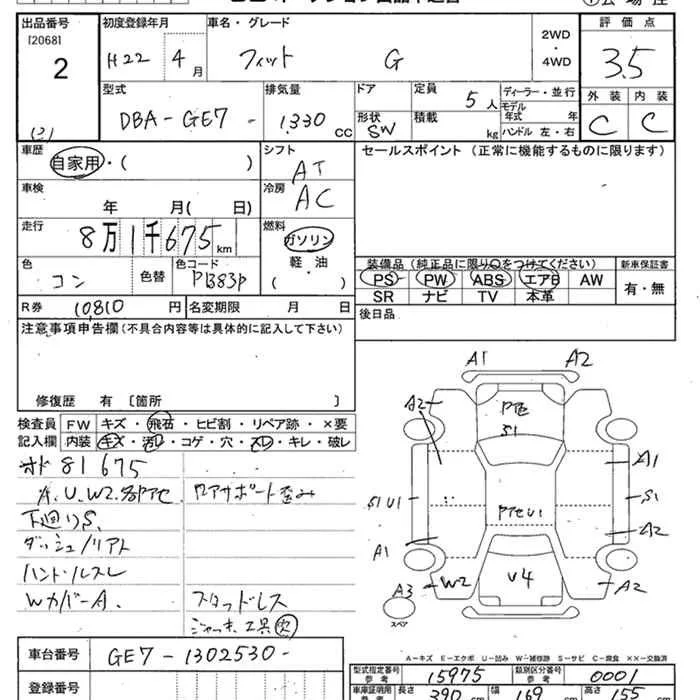 出品番号 初度登録年月 車名・グレード 評価点
[2068]
2 H22年 4月 フィット G 2WD・4WD 3.5
型式 排気量 ドア 定員 5人 ディーラー・並行 外装 内装
DBA-GE7- 1330cc 形状 SW 積載 kg モデル年式 年 C C
ハンドル 左・右
(2)
車歴 自家用・( ) シフト AT セールスポイント(正常に機能するものに限ります)
車検 年 月( 日) 冷房 AC
走行 8万1千675km 燃料 ガソリン・軽油・( )
色 コン 色替 色コード PB83P
装備品(純正品に限り○をつけてください) 新車保証書
PS PW ABS エアB AW 有・無
SR ナビ TV 本革
R券 10810円 名変期限 月 日 後日品
注意事項申告欄(不具合内容等は具体的に記入して下さい)
修復歴 有 〔箇所 〕
検査員記入欄 FW キズ・飛石・ヒビ割・リペア跡・×要
内装 キズ・汚レ・コゲ・穴・スレ・キレ・破レ
オド 81675
A.U.W2.各部アセ ロアサポート歪み
下廻りS.
ダッシュ/リアト
ハンドルスレ
WカバーA. スタッドレス
ジャッキ、工具欠
A1 A2
A2 Pアセ
S1
A1
S1 U1 PアセU1 S1
A2
A1
W2 V4 A2
A3
スペア
A-キズ E-エクボ U-凹み W-補修跡 S-サビ C-腐食 ××-交換済
車台番号 GE7-1302530-
登録番号
型式指定番号 参考 15975 類別区分番号 参考 0001
車庫証明用 参考 長さ 390cm 幅 169cm 高さ 155cm